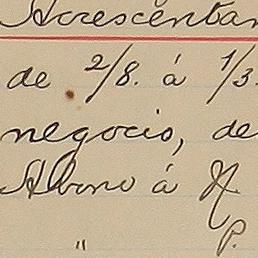 Acrescentan
de 2/8. á 1/3.
negocio, de
Abono á N.
" P.